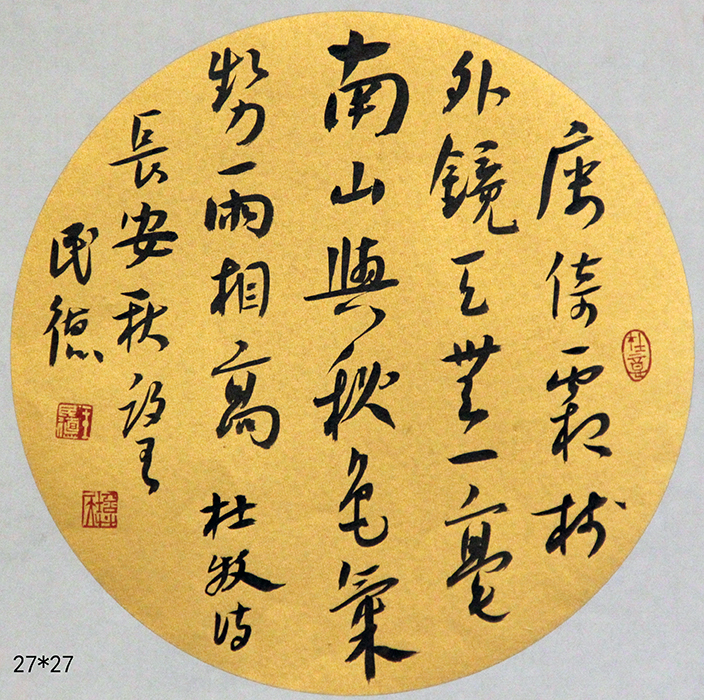 倚霜樹
外鏡天無一毫
南山與秋色氣
勢兩相高 杜牧詩
長安秋望
民德
27*27